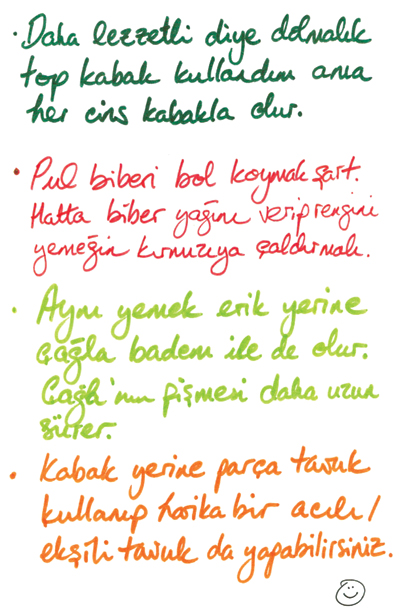 · Daha lezzetli diye dolmalık
top kabak kullandım ama
her cins kabakla olur.
· Pul biberi bol koymak şart.
Hatta biber yağını verip rengini
yemeğin kırmızıya çaldırmalı.
· Aynı yemek erik yerine
çağla badem ile de olur.
Çağla'nın pişmesi daha uzun
sürer.
· Kabak yerine parça tavuk
kullanıp harika bir acılı/
ekşili tavuk da yapabilirsiniz.